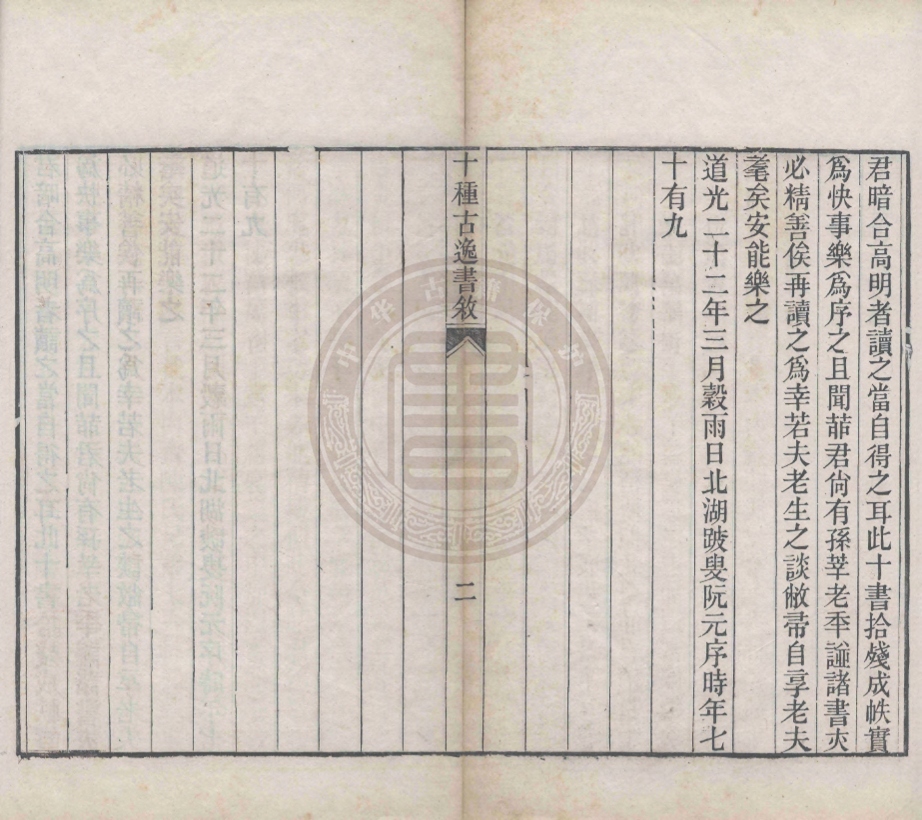 君暗合高明者讀之當自得之耳此十書拾殘成帙實
爲快事樂爲序之且聞䔥君尙有孫莘老年譜諸書夾
必精善俟再讀之爲幸若夫老生之談敝帚自享老夫
耄矣安能樂之
道光二十二年三月穀雨日北湖跛叟阮元序時年七
十有九
十種古逸書敘
二